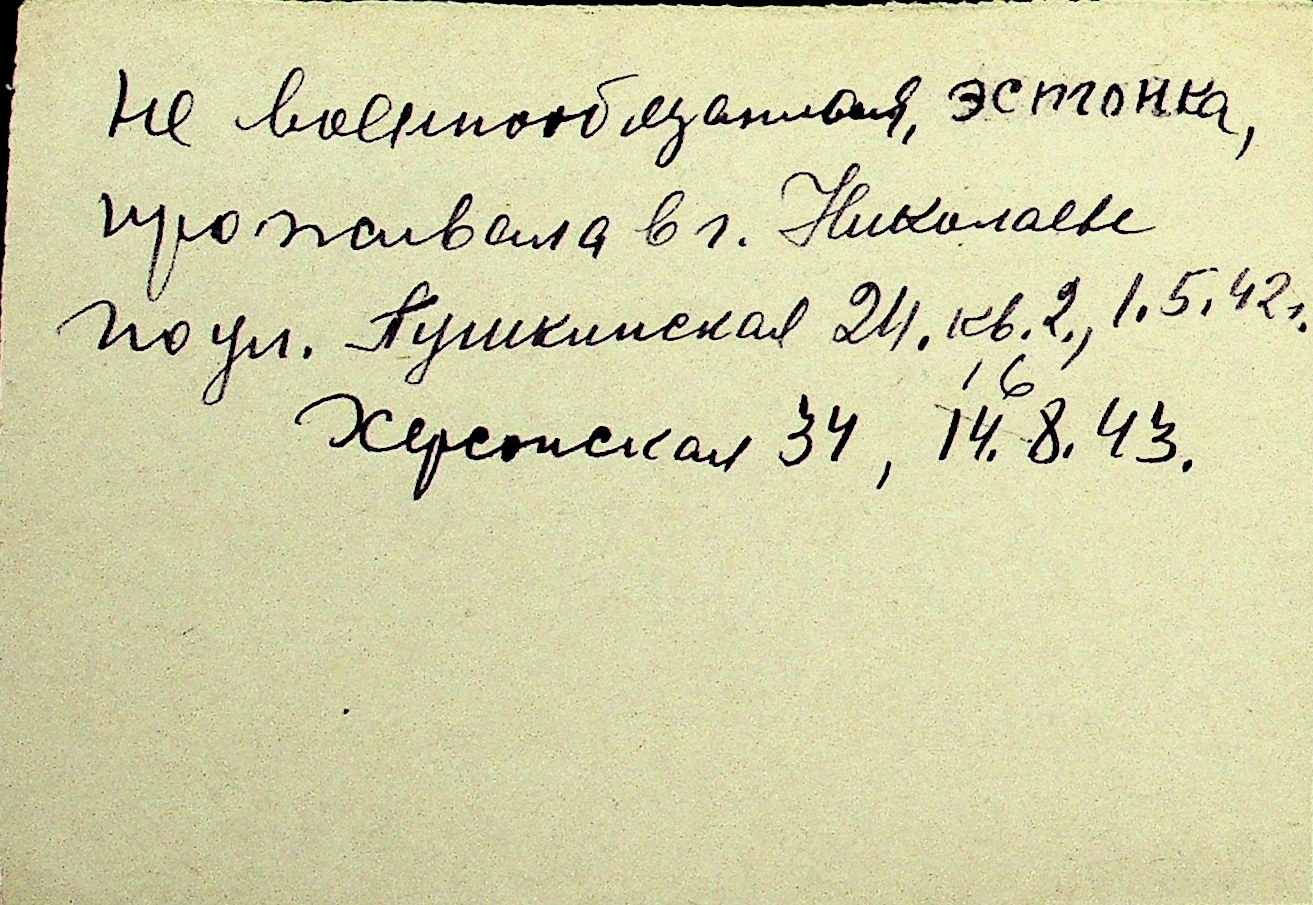 не военнообязанная, эстонка,
проживала в г. Николаеве
по ул. Пушкинская 24. кв. 2., 1.5.42г.
16
Херсонская 34, 14.8.43.